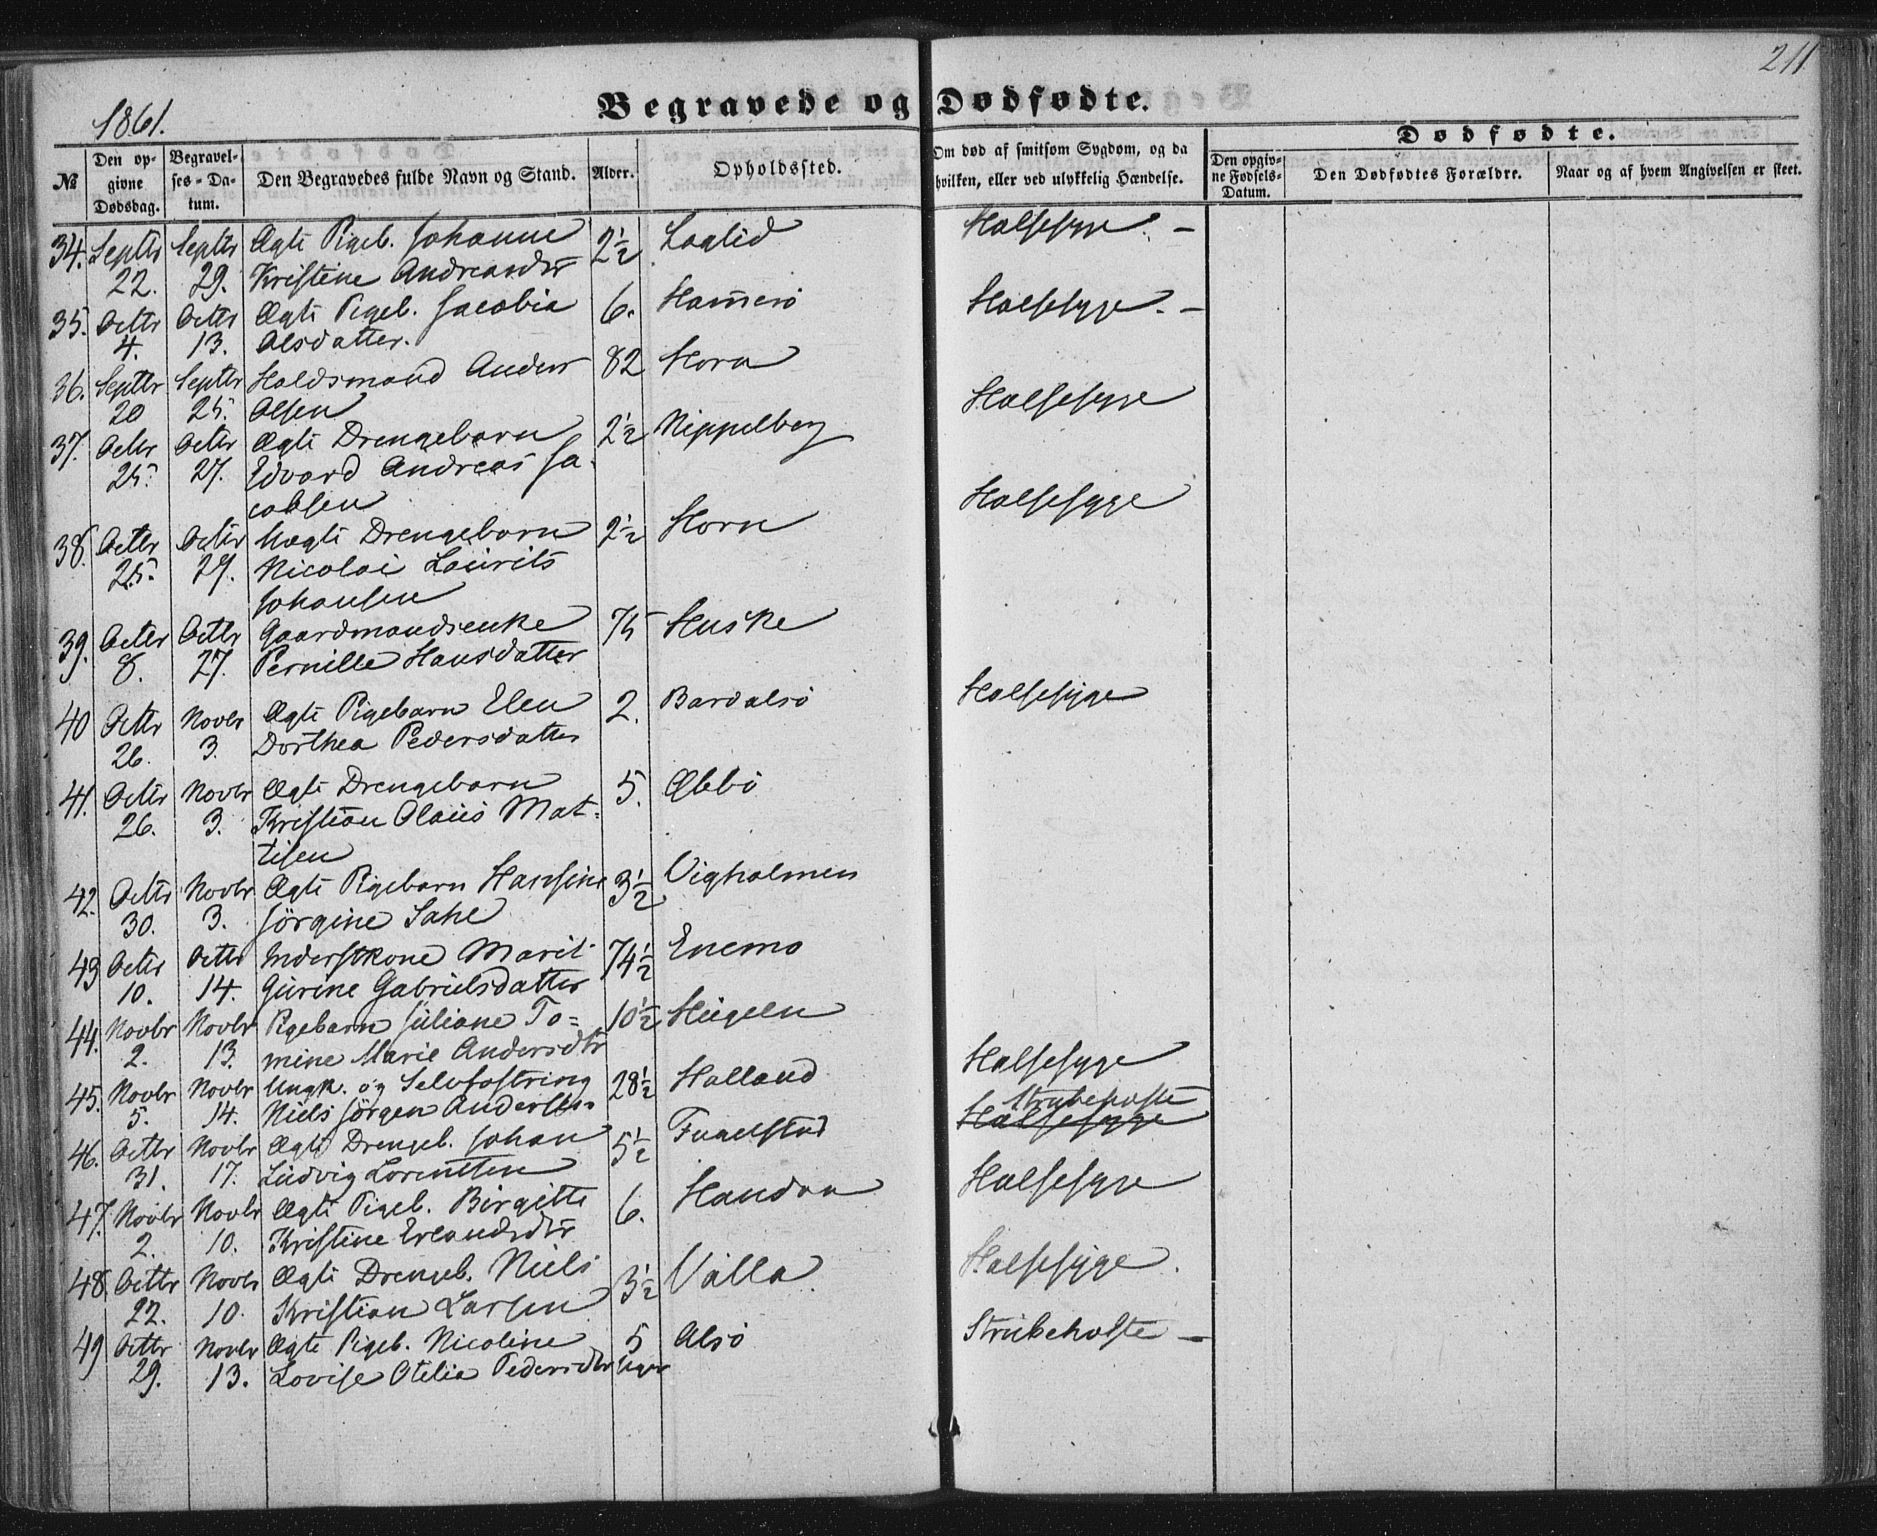 211
1861.
Begravede og Dødfødte.
Dødfødte.
No
Den opgivne Dødsdag.
Begravelses-Datum.
Den Begravedes fulde Navn og Stand.
Alder.
Opholdssted.
Om død af smitsom Sygdom, og da hvilken, eller ved ulykkelig Hændelse.
Den opgivne Fødsels-Datum.
Den Dødfødtes Forældre.
Naar og af hvem Angivelsen er skeet.
34. Septbr Septbr Ægte Pigeb. Johanne 2½ Halsesyge. –
22. 29. Kristine Andreasdtr
35. Octbr Octbr Ægte Pigeb. Jacobia 6. Hamnerö Halsesyge. –
4. 13. Olsdatter.
36. Septbr Septbr Anders 82 Horn
20 25. Olsen Halsesyge
37. Octbr Octbr Ægte Drengebarn 2½ Nippelberg
25. 27. Edvard Andreas Ja-
cobsen Halsesyge
38. Octbr Octbr Uægte Drengebarn 2½ Horn
25. 29. Nicolai Laurits
Johansen
39. Octbr Octbr Gaardmandsenke 75 Huske
8. 27. Pernille Hansdatter
40 Octbr Novbr Ægte Pigebarn Elen 2. Bardalsö Halsesyge
26. 3. Dorthea Pedersdatter
41. Octbr Novbr Ægte Drengebarn 5. Æbbö
26. 3. Kristian Olaus Mat-
tisen
42. Octbr Novbr Ægte Pigebarn Hansine 3½ Vigholmen
30. 3. Jörgine Sahl
43 Octbr Octbr Inderstkone Marit 74½ Enemo
10. 14. Gurine Gabrielsdatter
44. Novbr Novbr Pigebarn Juliane To= 10½ Hugeln
2. 13. mine Marie Andersdtr Halsesyge
45. Novbr Novbr Ungk. og Selvfostring 28½ Halland Strubehoste
5. 14. Niels Jörgen Anders. Halsesyge
46. Octbr Novbr Ægte Drengeb. Johan 5½ Fugelstad
31. 17. Ludvig Lorentsen Halsesyge
47. Novbr Novbr Ægte Pigeb. Birgitte 6. Handon
2. 10. Kristine Erlandsdtr
48. Octbr Novbr Ægte Drengeb. Niels 3½ Valla Halsesyge.
22. 10. Kristian Larsen
49 Octbr Novbr Ægte Pigeb. Nicoline 5 Alsö Strubehoste –
29. 13. Lovise Otelie Pedersdtr Uger